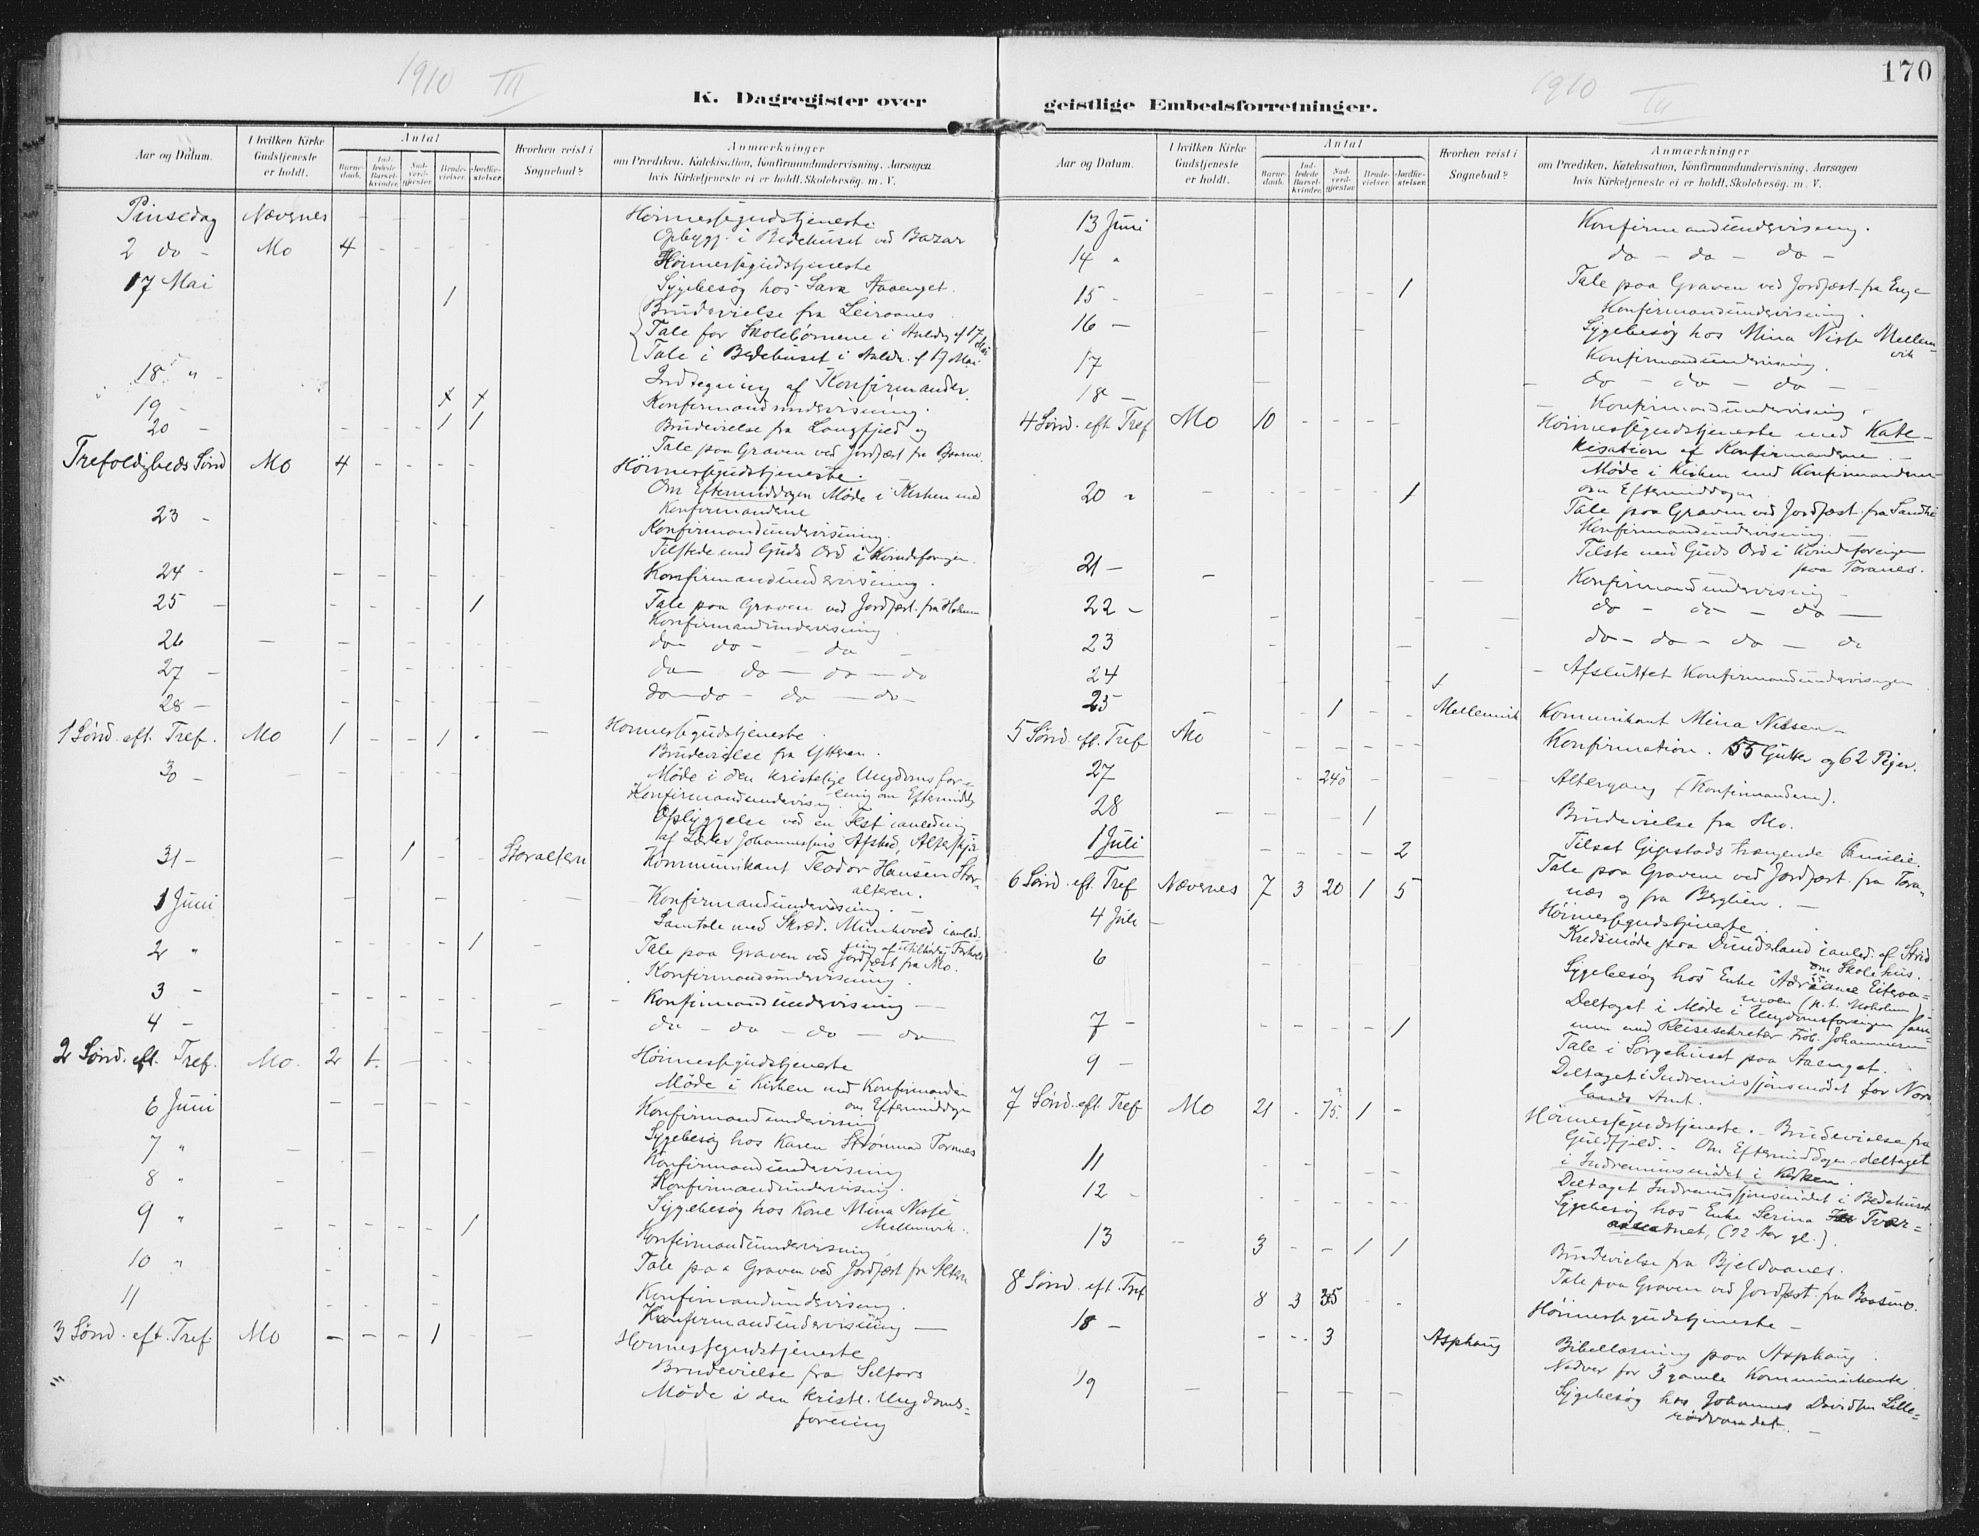 1910 III
K. Dagregister over
Aar og Datum.
I hvilken Kirke Gudstjeneste er holdt.
Antal
Barnedaab.
Indledede Barselkvinder.
Nadverdgjester.
Brudevielser.
Jordfæstelser.
Hvorhen reist i Sognebud?
Anmærkninger
om Prædiken, Katekisation, Konfirmandundervisning, Aarsagen
hvis Kirketjeneste ei er holdt, Skolebesøg m. V.
Pinsedag Nævernes - - - - Høimessegudstjeneste
Opbygg. i Bedehuset ved Bazar
2 do - Mo 4 - - - - Høimessegudstjeneste
17 Mai 1 Sygebesøg hos Sara Aaenget.
Brudevielse fra Leiraanes
Tale for Skolebørnene i Anledn. af 17 Mai
Tale i Bedehuset i Anledn. af 17 Mai
18 " - Indtegning af Konfirmander.
19 - Konfirmandundervisning.
20 - 1 1 Brudevielse fra Langfjeld og
Tale paa Graven ved Jordfæst. fra
Trefoldigheds Sønd Mo 4 - - - - Høimessegudstjeneste
Om Eftermiddagen Møde i Kirken med
Konfirmanderne
23 - Konfirmandundervisning.
Tilstede med Guds Ord i Kvindeforeningen.
24 - Konfirmandundervisning.
25 - 1 Tale paa Graven ved Jordfæst. fra
Konfirmandundervisning.
26 - do - do - do -
27 - do - do - do - do
28 - do - do - do - do -
1 Sønd. eft. Tref. Mo 1 - - 1 - Høimessegudstjeneste.
Brudevielse fra Ytteren.
Møde i den kristelige Ungdomsfore-
ning om Eftermiddag
30 - Konfirmandundervisng.
Opbyggelse ved en Fest i anledning
af Lærer Johannessens Afsked,
31 - 1 Storalteren Kommunikant Teodor Hansen Stor-
alteren.
1 Juni Konfirmandundervisning. -
Samtale med Skræd. Munkvold i anled-
ning af
2 " 1 Tale paa Graven ved Jordfæst fra Mo.
Konfirmandundervisning.
3 - Konfirmandundervisning -
4 - do - do - do - do
2 Sønd. eft. Tref. Mo. 2 1. - - - Høimessegudstjeneste
Møde i Kirken med Konfirmanden
om Eftermiddagen
6 Juni Konfirmandundervisning
Sygebesøg hos Karen Strømmed Toranes
7 " Konfirmandundervisning
8 " Konfirmandundervisning.
9 " 1 Sygebesøg hos Kone Mina Nisse
Mellemvik.
Konfirmandundervisning
10 " Tale paa Graven ved Jordfæst fra Altern
11 Konfirmandundervisning.
Konfirmandundervisning -
3 Sønd. eft. Tref. Mo - - - 1 - Høimessegudstjeneste
Brudevielse fra Selfors
Møde i den Kristl. Ungdoms=
forening
1910 III
170
geistlige Embedsforretninger.
Aar og Datum.
I hvilken Kirke Gudstjeneste er holdt.
Antal
Barnedaab.
Indledede Barselkvinder.
Nadverdgjester.
Brudevielser.
Jordfæstelser.
Hvorhen reist i Sognebud?
Anmærkninger
om Prædiken, Katekisation, Konfirmandundervisning, Aarsagen
hvis Kirketjeneste ei er holdt, Skolebesøg m. V.
13 Juni Konfirmandundervisning.
14 " do - do - do -
15 - 1 Tale paa Graven ved Jordfæst. fra Enge
Konfirmandundervisning.
16 - Sygebesøg hos Mina Nisse Mellem-
vik
17 Konfirmandundervisning.
do - do - do -
18 - Konfirmandundervisning.
4 Sønd. eft. Tref Mo 10 - - - - Høimessegudstjeneste med Kate-
kisation af Konfirmanderne. -
Møde i Kirken med Konfirmanderne
om Eftermiddagen.
20 " 1 Tale paa Graven ved Jordfæst. fra
Konfirmandundervisning. -
Tilste med Guds Ord i Kvindeforeningen
paa Toranes.
21 - Konfirmandundervisning -
22 - do - do - do -
23 do - do - do - do
24 - Afsluttet Konfirmandundervisningen
25 1 - - Mellemvik Kommunikant Mina Nilsen -
5 Sønd. eft. Tref Mo Konfirmation. 55 Gutter og 62 Piger.
27 240 Altergang (Konfirmandern).
28 - 1 Brudevielse fra Mo.
1 Juli 2 Tilset Gjerstads trængende Familie.
Tale paa Gravene ved Jordfæst. fra Tora-
næs og fra Berglien. -
6 Sønd. eft. Tref Nævernes 7 3 20 1 5 Høimessegudstjeneste.
4 Juli - Kredsmøde paa Dunderland i anled. af Strid
om Skolehus.
6 Sygebesøg hos Enke Adriane Eiteraa-
moen (p.t. Moholmen)
Deltaget i Møde i Ungdomsforeningen
med Reisesekretær Frøk. Johannesen
7 - 1 Tale i Sørgehuset paa Aaenget.
9 - Deltaget i Indremissjonsmødet for Nord-
lands Amt.
7 Sønd. eft. Tref Mo 21 - 75. 1 - Høimessegudstjeneste. - Brudevielse fra
Guldfjeld. - Om Eftermiddagen deltaget
i Indremissmødet i Kirken.
11 Deltaget Indremissjonsmødet i Bedehuset
12 - Sygebesøg hos Enke Serina Tvær=
(92 Aar gl.).
13 - 3 - - 1 1 Brudevielse fra Bjeldaanes.
Tale paa Graven ved Jordfæst. fra Baasmo.
8 Sønd. eft. Tref 8 3 35 - - Høimessegudstjeneste -
18 - 3 Asphaug Bibellæsning paa Asphaug.
Nadver for 3 gamle Kommunikanter
19 - Sygebesøg hos Johannes Davidsen Lille=
rødvandet. -